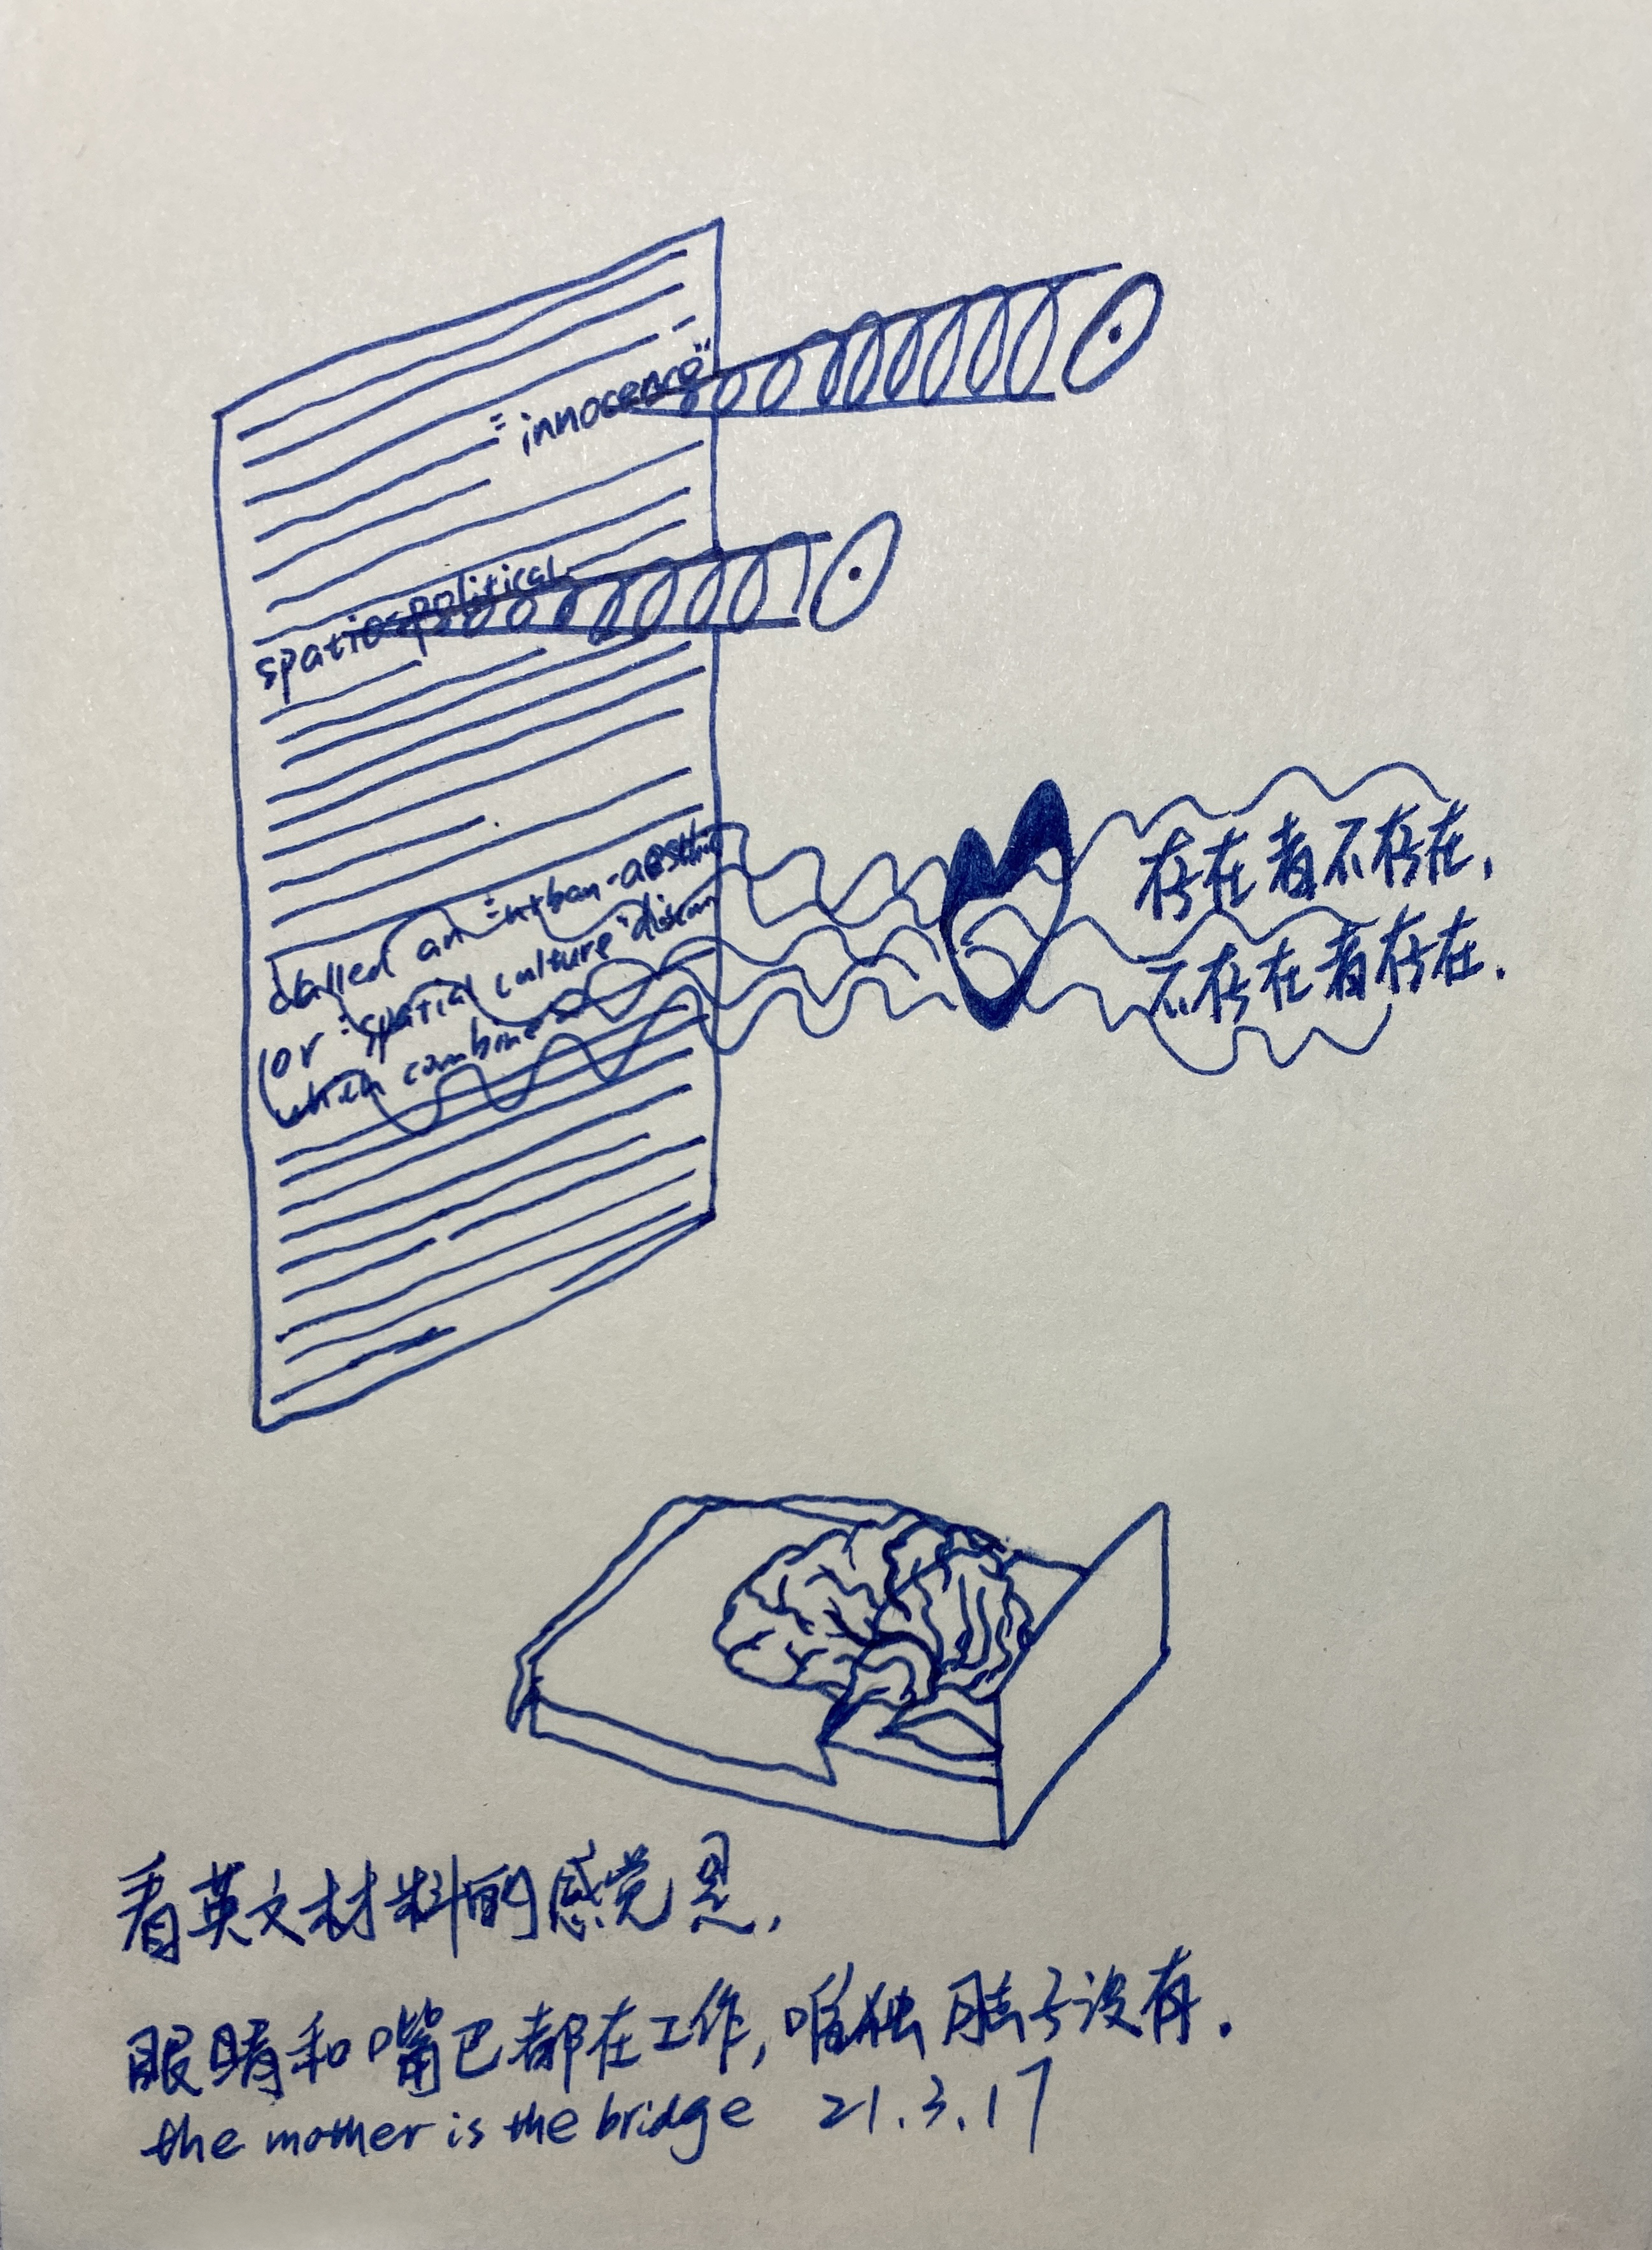 "innocence"
spatiospolitical
called an "urban-aesthe
(or "spatial culture" discour
which combines
存在者不存在,
不存在者存在.
看英文材料的感觉是,
眼睛和嘴巴都在工作,唯独脑子没有.
the mother is the bridge 21.3.17